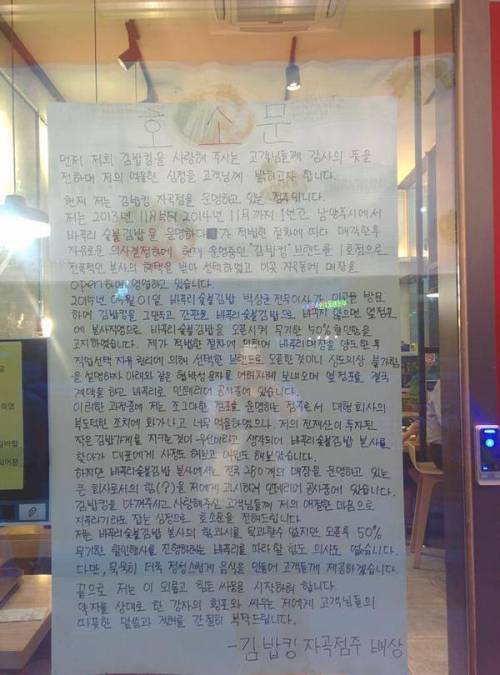 호소문
먼저 저희 김밥킹을 사랑해 주시는 고객님들께 감사의 뜻을
전하며 저의 억울한 심정을 고객님께 밝히고자 합니다.
현재 저는 김밥킹 자곡점을 운영하고 있는 점주입니다.
저는 2013년 11월부터 2014년 11월까지 1년간 남양주시에서
바푸리 숯불김밥을 운영하다 가 적법한 절차에 따라 매각한후
자유로운 의사결정하에 현재 운영중인 "김밥킹" 브랜드를 1호점으로
전폭적인 본사의 혜택을 받아 선택하였고 이곳 자곡동에 매장을
open하여 영업하고 있습니다.
2015년 04월 01일 바푸리 숯불김밥 박상훈 전무이사가 이곳을 방문
하여 김밥킹을 그만두고 간판을 바푸리숯불김밥으로 바꾸지 않으면 옆점포
에 본사직영으로 바푸리 숯불김밥을 오픈시켜 무기한 50% 할인판매을
고지하였습니다. 제가 적법한 절차에 의하여 바푸리매장을 양도한 후
직업선택 자유 권리에 의해 선택한 브랜드로 오픈한것이니 심도의상 불가함
을 설명하자 아래와 같은 협박성 문자를 여러차례 보내오며 옆점포를 결국
계약을 하고 바푸리로 인테리어 공사중에 있습니다.
이러한 과정중에 저는 조그마한 점포를 운영하는 점주로서 대형회사의
부도덕한 조치에 화가나고 너무 억울하였으나 저의 전재산이 투자된
작은 김밥가게를 지키는것이 우선이라고 생각되어 바푸리숯불김밥 본사를
찾아가 대표에게 사정도 해보고 애원도 해보았습니다.
하지만 바푸리숯불김밥 본사에서는 전국 280개의 매장을 운영하고 있는
큰 회사로서의 힘(?)을 저에게 과시하며 인테리어 공사중에 있습니다.
김밥킹을 아껴주시고 사랑해주신 고객님들께 저의 애절한 마음으로
지푸라기라도 잡는 심정으로 호소문을 전해드립니다.
저는 바푸리숯불김밥 본사의 힘과시를 묵과할수 없지만 오픈후 50%
무기한 할인행사를 진행하려는 바푸리를 따라할 힘도 의사도 없습니다.
다만, 묵묵히 더욱 정성스럽게 음식을 만들어 고객들께 제공하겠습니다.
끝으로 저는 이 외롭고 힘든 싸움을 시작하려 합니다.
약자를 상대로 한 강자의 횡포와 싸우는 저에게 고객님들의
따뜻한 말씀과 격려를 간절히 부탁드립니다.
-김밥킹 자곡점주 배상